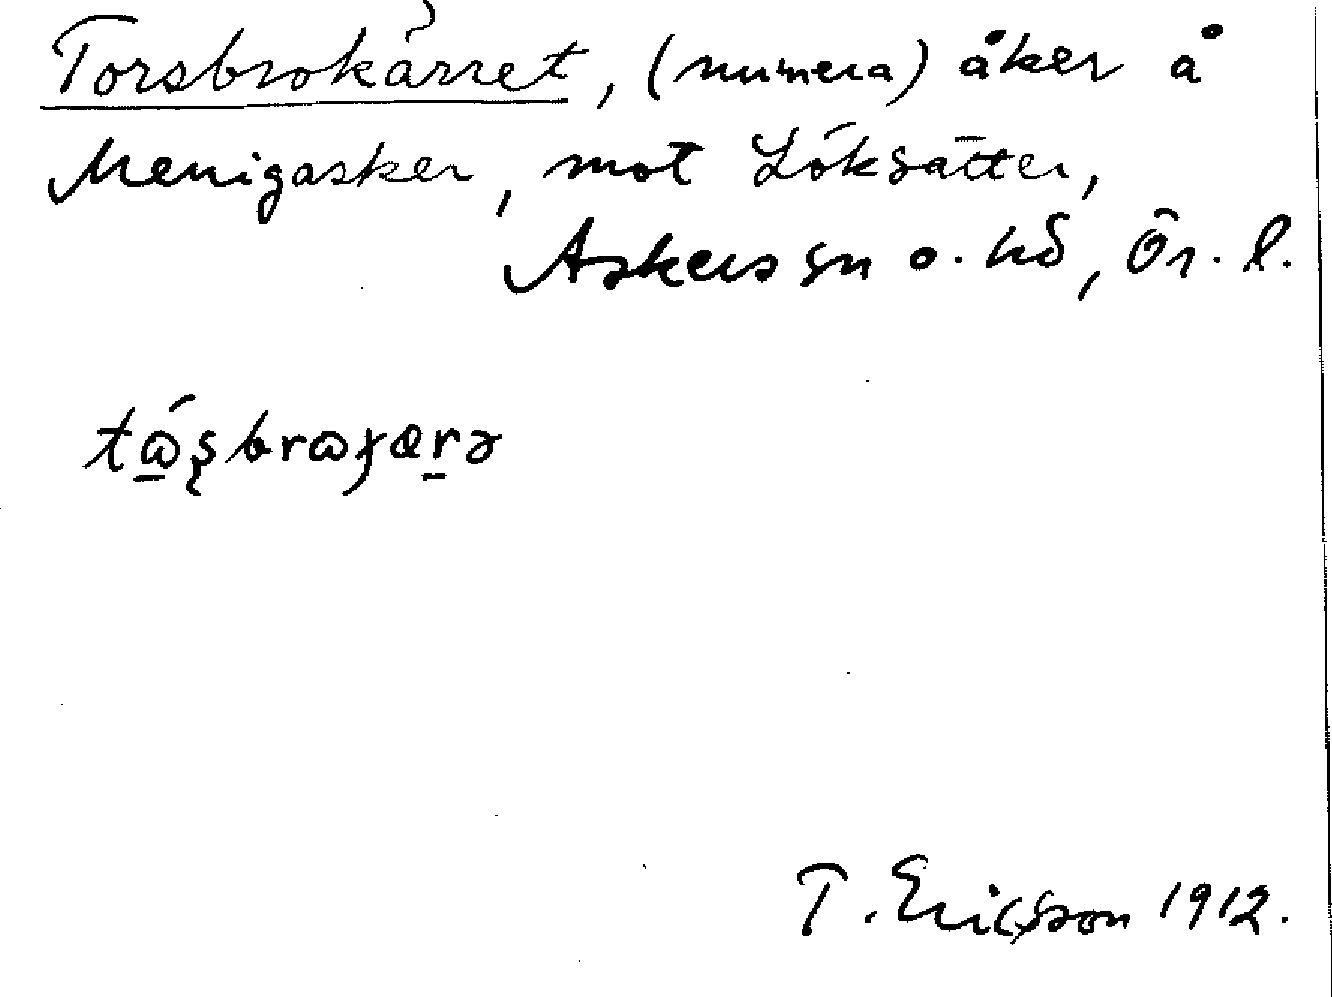 Torsbrokärret, (numera) åker å
Menigasker, mot Löksätter,
Askers sn o. hd, Ör. l.
tɷ̲́ʂbrɷɟær̲ə
T. Ericsson 1912.